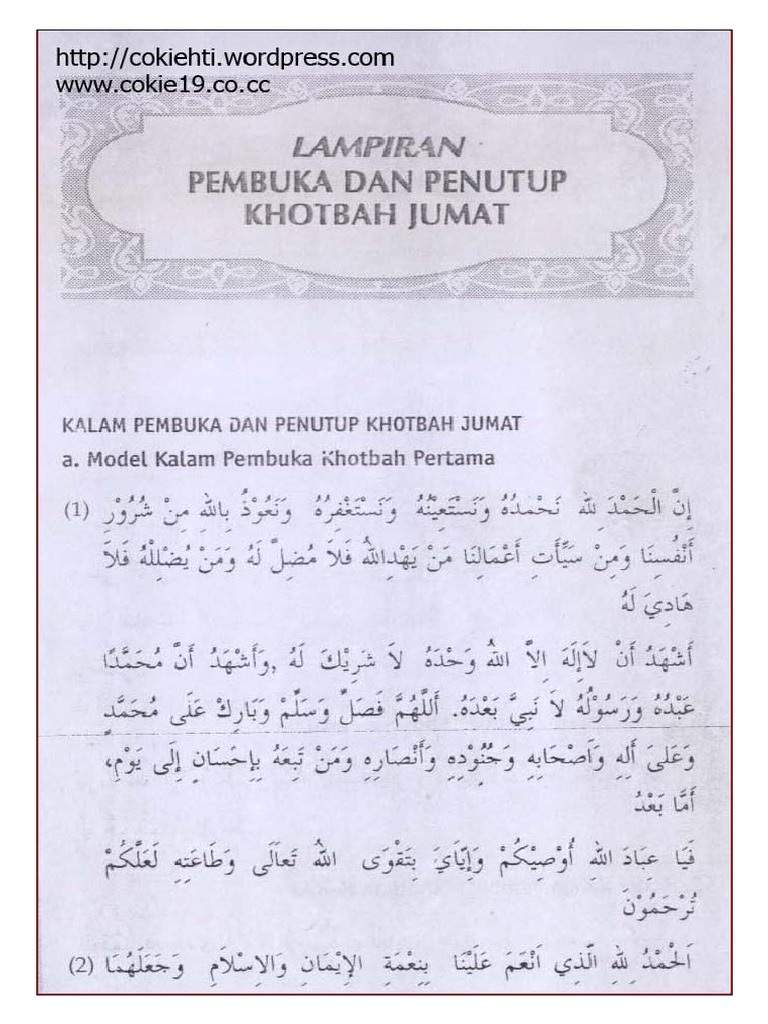 http://cokiehti.wordpress.com
www.cokie19.co.cc
LAMPIRAN
PEMBUKA DAN PENUTUP
KHOTBAH JUMAT
KALAM PEMBUKA DAN PENUTUP KHOTBAH JUMAT
a. Model Kalam Pembuka Khotbah Pertama
(1) إِنَّ الْحَمْدَ لِلهِ نَحْمَدُهُ وَنَسْتَعِيْنُهُ وَنَسْتَغْفِرُهُ وَنَعُوْذُ بِاللهِ مِنْ شُرُوْرِ
أَنْفُسِنَا وَمِنْ سَيِّأَتِ أَعْمَالِنَا مَنْ يَهْدِاللهُ فَلاَ مُضِلَّ لَهُ وَمَنْ يُضْلِلْهُ فَلاَ
هَادِيَ لَهُ
أَشْهَدُ أَنْ لاَإِلَهَ اِلاَّ اللهُ وَحْدَهُ لاَ شَرِيْكَ لَهُ ,وَأَشْهَدُ أَنَّ مُحَمَّدًا
عَبْدُهُ وَرَسُوْلُهُ لاَ نَبِيَّ بَعْدَهُ. أَللَّهُمَّ فَصَلِّ وَسَلِّمْ وَبَارِكْ عَلَى مُحَمَّدٍ
وَعَلَىَ أَلِهِ وَاَصْحَابِهِ وَجُنُوْدِهِ وَأَنْصَارِهِ وَمَنْ تَبِعَهُ بِإِحْسَانٍ إِلَى يَوْمِ،
أَمَّا بَعْدُ
فَيَا عِبَادَ اللهِ أُوْصِيْكُمْ وَإِيَّايَ بِتَقْوَى اللهِ تَعَالَى وَطَاعَتِهِ لَعَلَّكُمْ
تُرْحَمُوْنَ
(2) اَلْحَمْدُ لِلهِ الَّذِي اَنْعَمَ عَلَيْنَا بِنِعْمَةِ الإِيْمَانِ وَالاِسْلاَمِ وَجَعَلَهُمَا